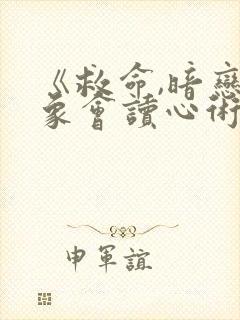 《救命,暗戀
象會讀心術
申軍誼